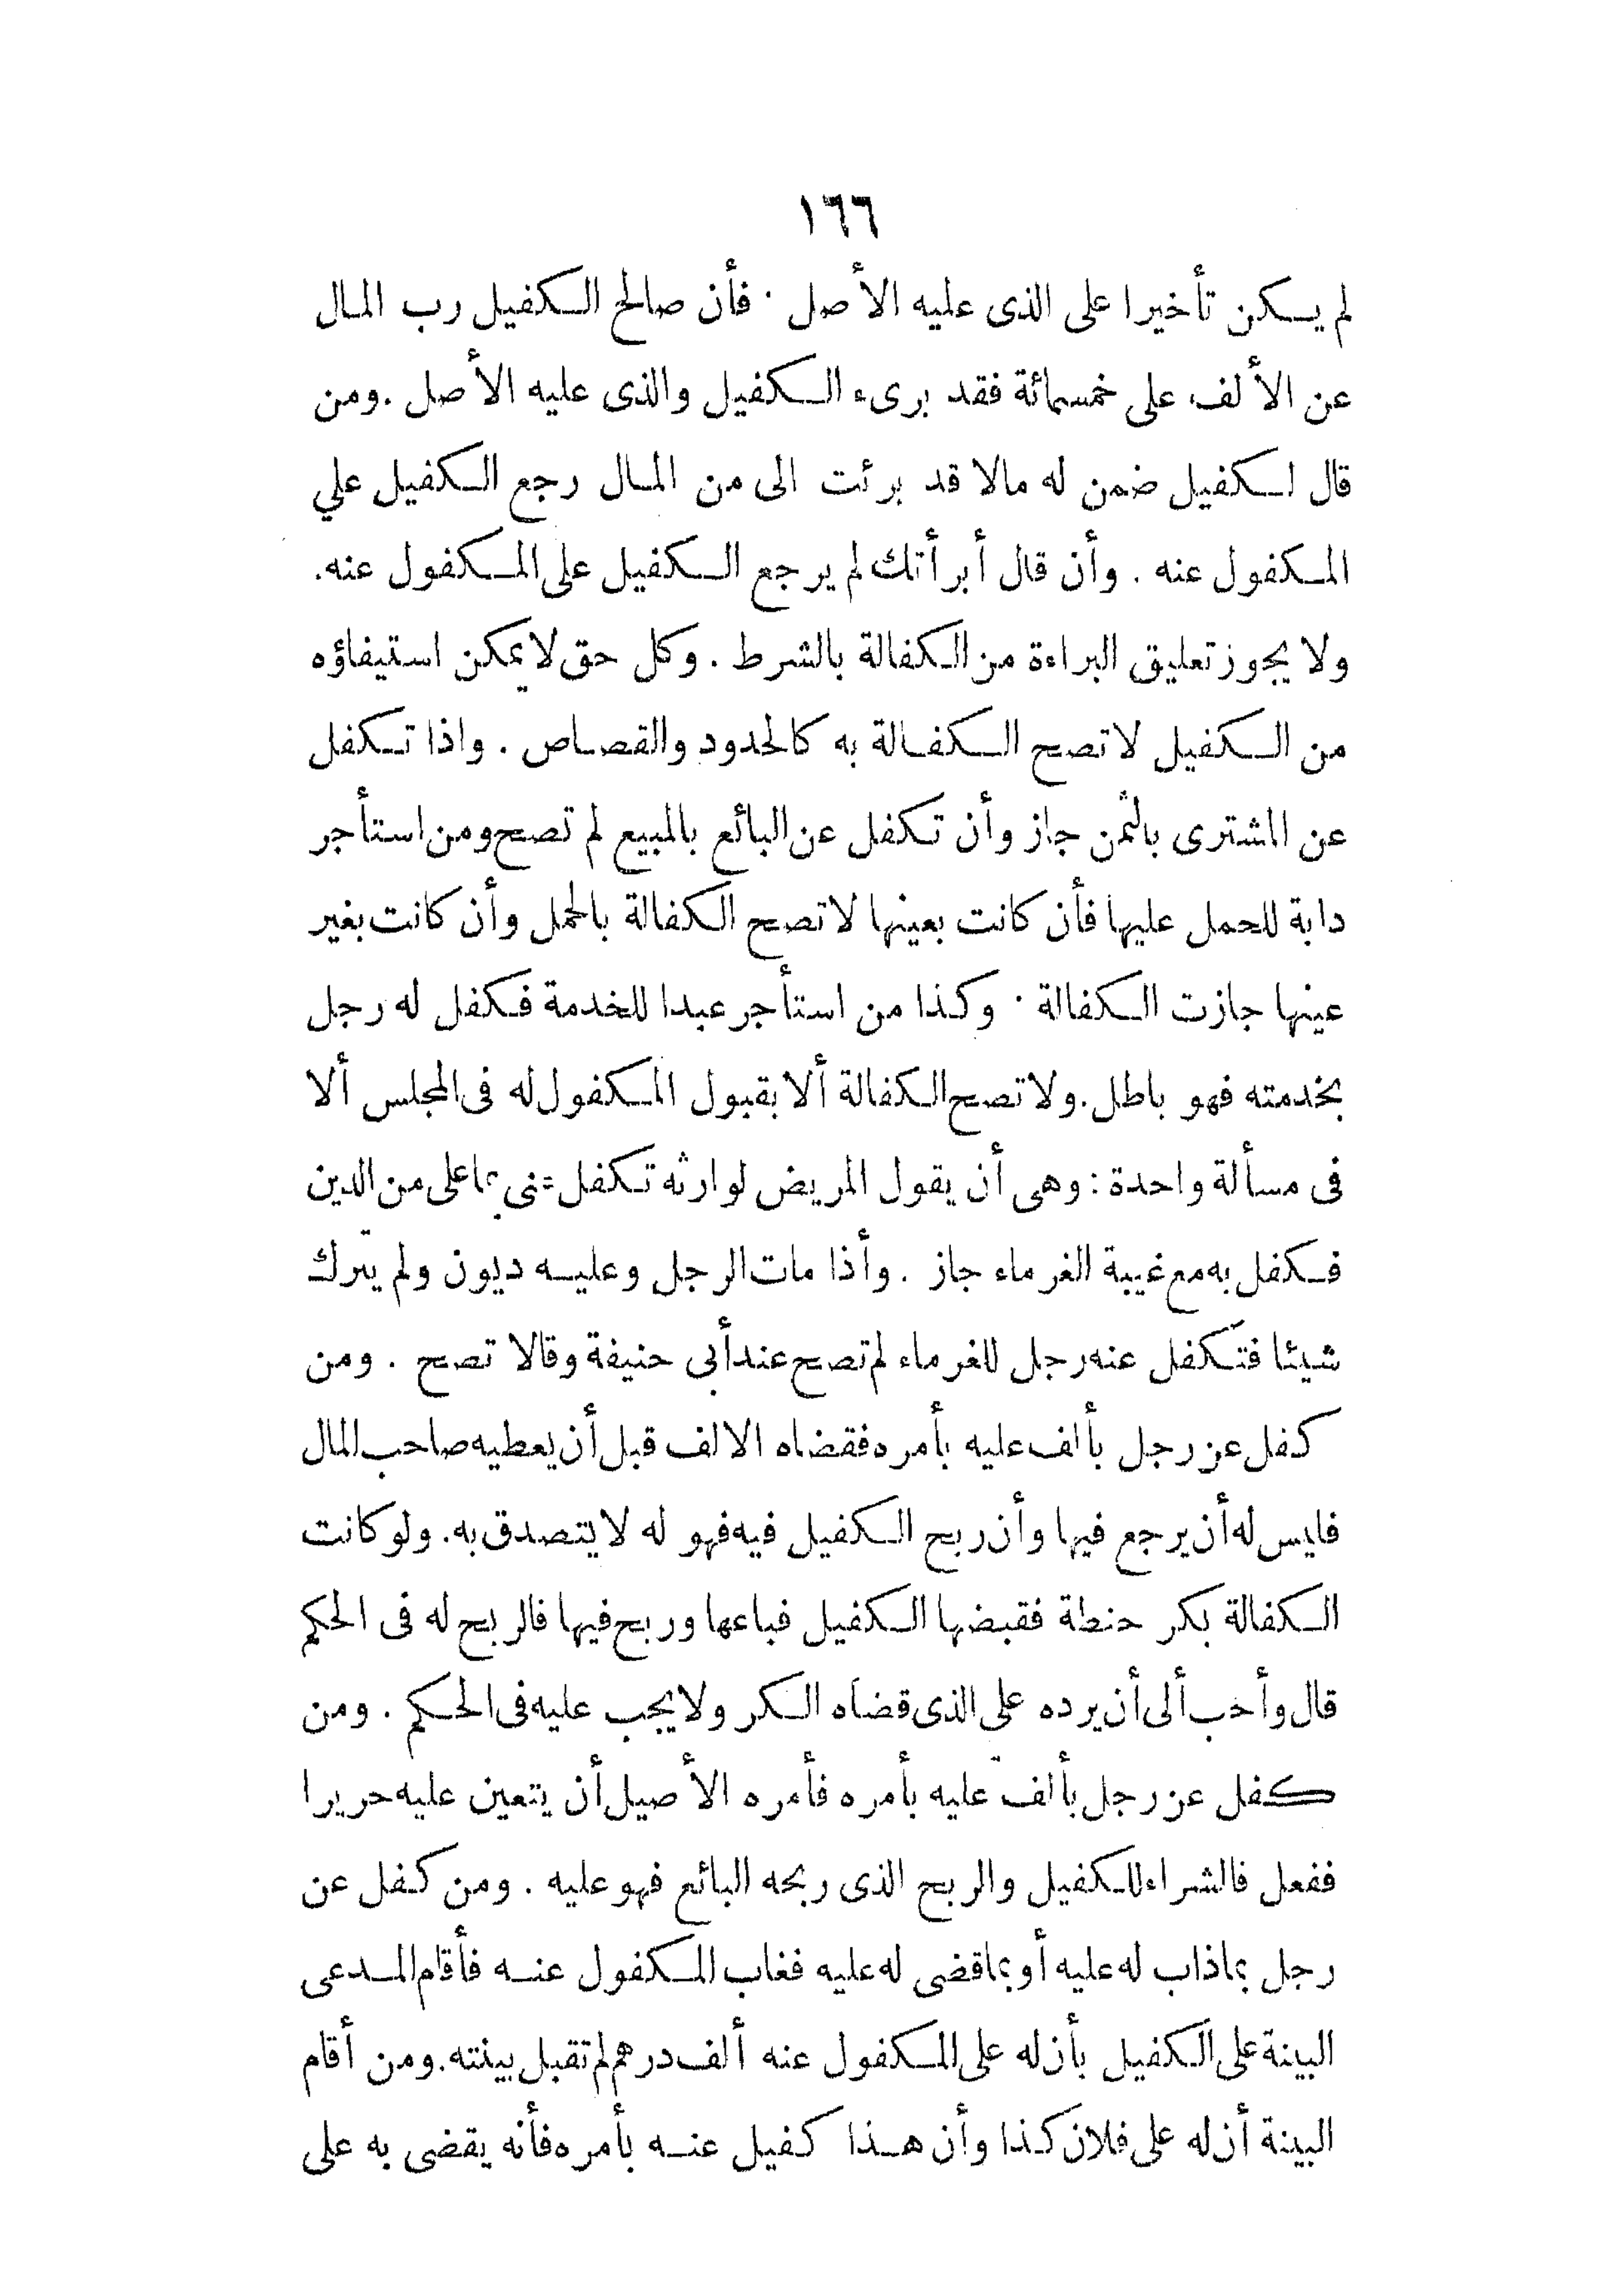 ١٦٦
لم يكن تأخيرا على الذى عليه الأصل . فأن صالح الكفيل رب المال
عن الألف على خمسمائة فقد برىء الكفيل والذى عليه الأصل . ومن
قال لكفيل ضمن له مالا قد برئت الى من المال رجع الكفيل علي
المكفول عنه . وأن قال أبرأتك لم يرجع الكفيل على المكفول عنه .
ولا يجوز تعليق البراءة من الكفالة بالشرط . وكل حق لا يمكن استيفاؤه
من الكفيل لا تصح الكفالة به كالحدود والقصاص . واذا تكفل
عن المشترى بالثمن جاز وأن تكفل عن البائع بالمبيع لم تصح ومن استأجر
دابة للحمل عليها فأن كانت بعينها لا تصح الكفالة بالحمل وأن كانت بغير
عينها جازت الكفالة . وكذا من استأجر عبدا للخدمة فكفل له رجل
بخدمته فهو باطل . ولا تصح الكفالة ألا بقبول المكفول له فى المجلس ألا
فى مسألة واحدة : وهى أن يقول المريض لوارثه تكفل عنى بما على من الدين
فكفل به مع غيبة الغرماء جاز . وأذا مات الرجل وعليه ديون ولم يترك
شيئا فتكفل عنه رجل للغرماء لم تصح عند أبى حنيفة وقالا تصح . ومن
كفل عن رجل بألف عليه بأمره فقضاه الالف قبل أن يعطيه صاحب المال
فليس له أن يرجع فيها وأن ربح الكفيل فيه فهو له لا يتصدق به . ولو كانت
الكفالة بكر حنطة فقبضها الكفيل فباعها وربح فيها فالربح له فى الحكم
قال وأحب ألى أن يرده على الذى قضاه الكر ولا يجب عليه فى الحكم . ومن
كفل عن رجل بألف عليه بأمره فأمره الأصيل أن يتعين عليه حريرا
ففعل فالشراء للكفيل والربح الذى ربحه البائع فهو عليه . ومن كفل عن
رجل بماذاب له عليه أو بماقضى له عليه فغاب المكفول عنه فأقام المدعى
البينة على الكفيل بأن له على المكفول عنه ألف درهم لم تقبل بينته . ومن أقام
البينة أن له على فلان كذا وأن هذا كفيل عنه بأمره فأنه يقضى به على